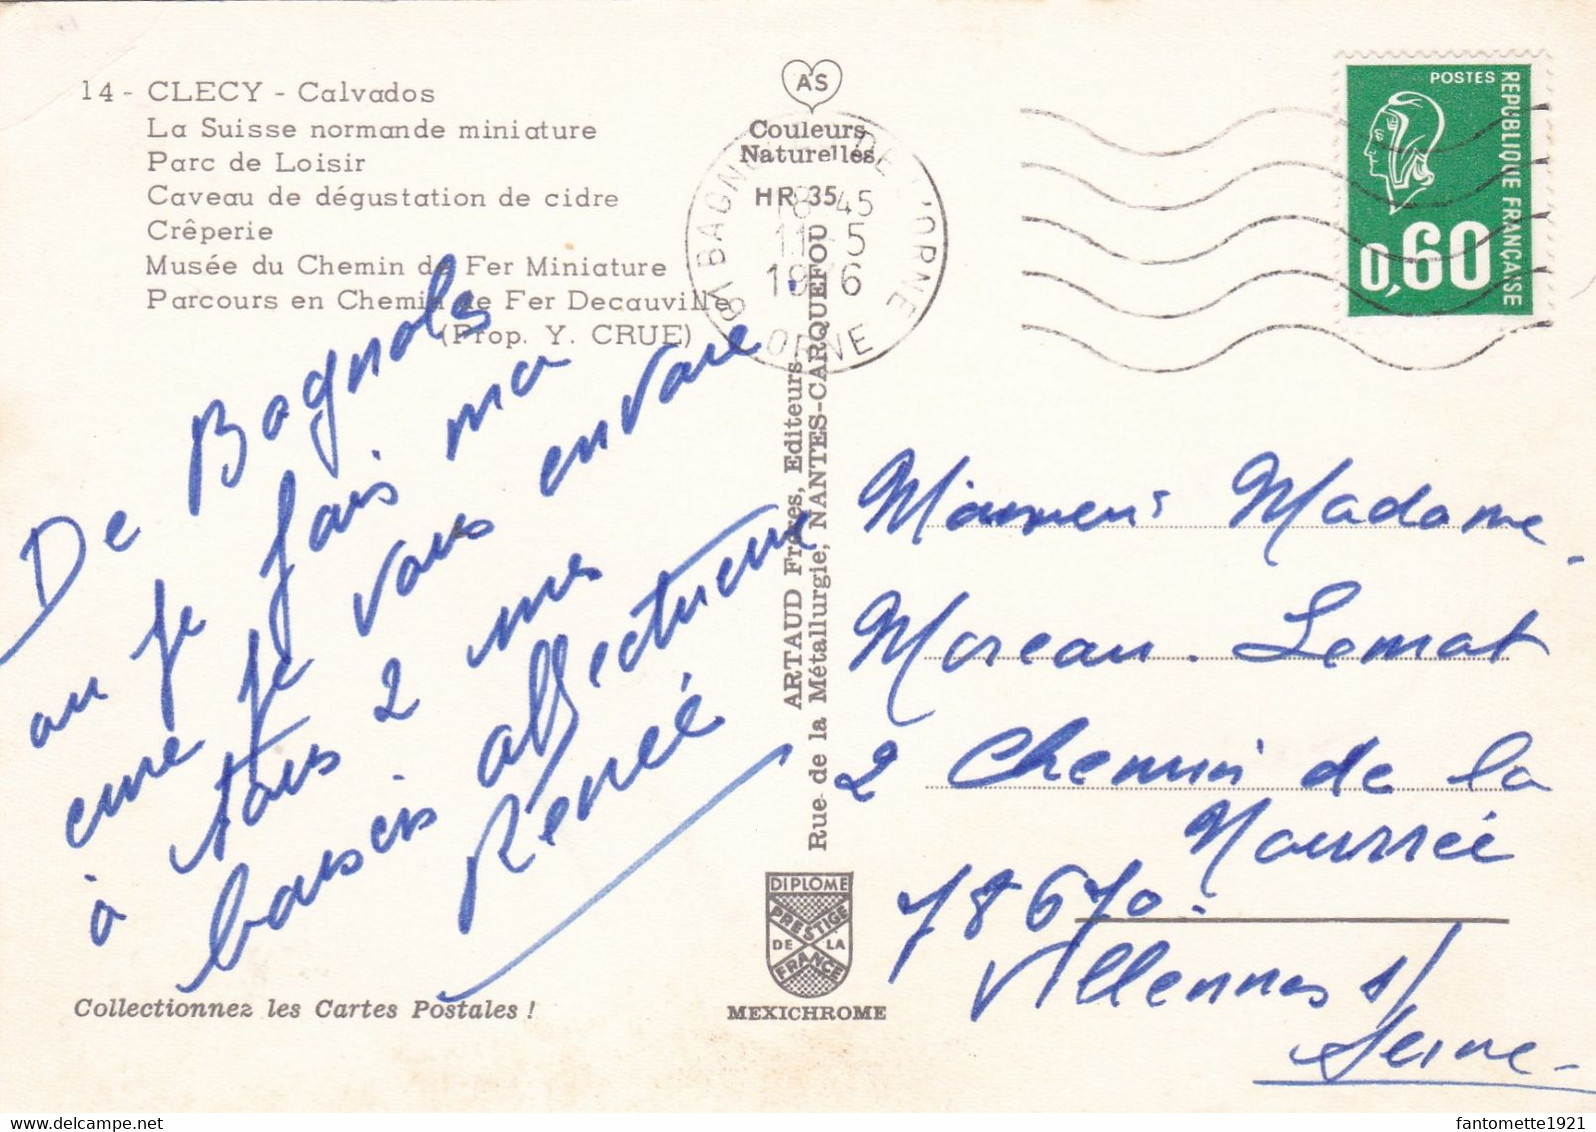 14 - CLECY - Calvados
La Suisse normande miniature
Parc de Loisir
Caveau de dégustation de cidre
Crêperie
Musée du Chemin de Fer Miniature
Parcours en Chemin de Fer Decauville
(Prop. Y. CRUE)
De Bagnols
ou je fais ma
cure je vous envoie
à tous 2 mes
baisers affectueux
Renée
Collectionnez les Cartes Postales !
AS
Couleurs
Naturelles
HR 35
61 BAGNOLES DE L'ORNE
18-45
11-5
1976
ORNE
ARTAUD Frères, Editeurs,
Rue de la Métallurgie, NANTES-CARQUEFOU
DIPLOME
PRESTIGE
DE LA
FRANCE
MEXICHROME
POSTES
REPUBLIQUE FRANÇAISE
0,60
Monsieur Madame
Moreau. Lemat
2 Chemin de la
Nourrée
78670.
Villennes s/
Seine
fantomette1921